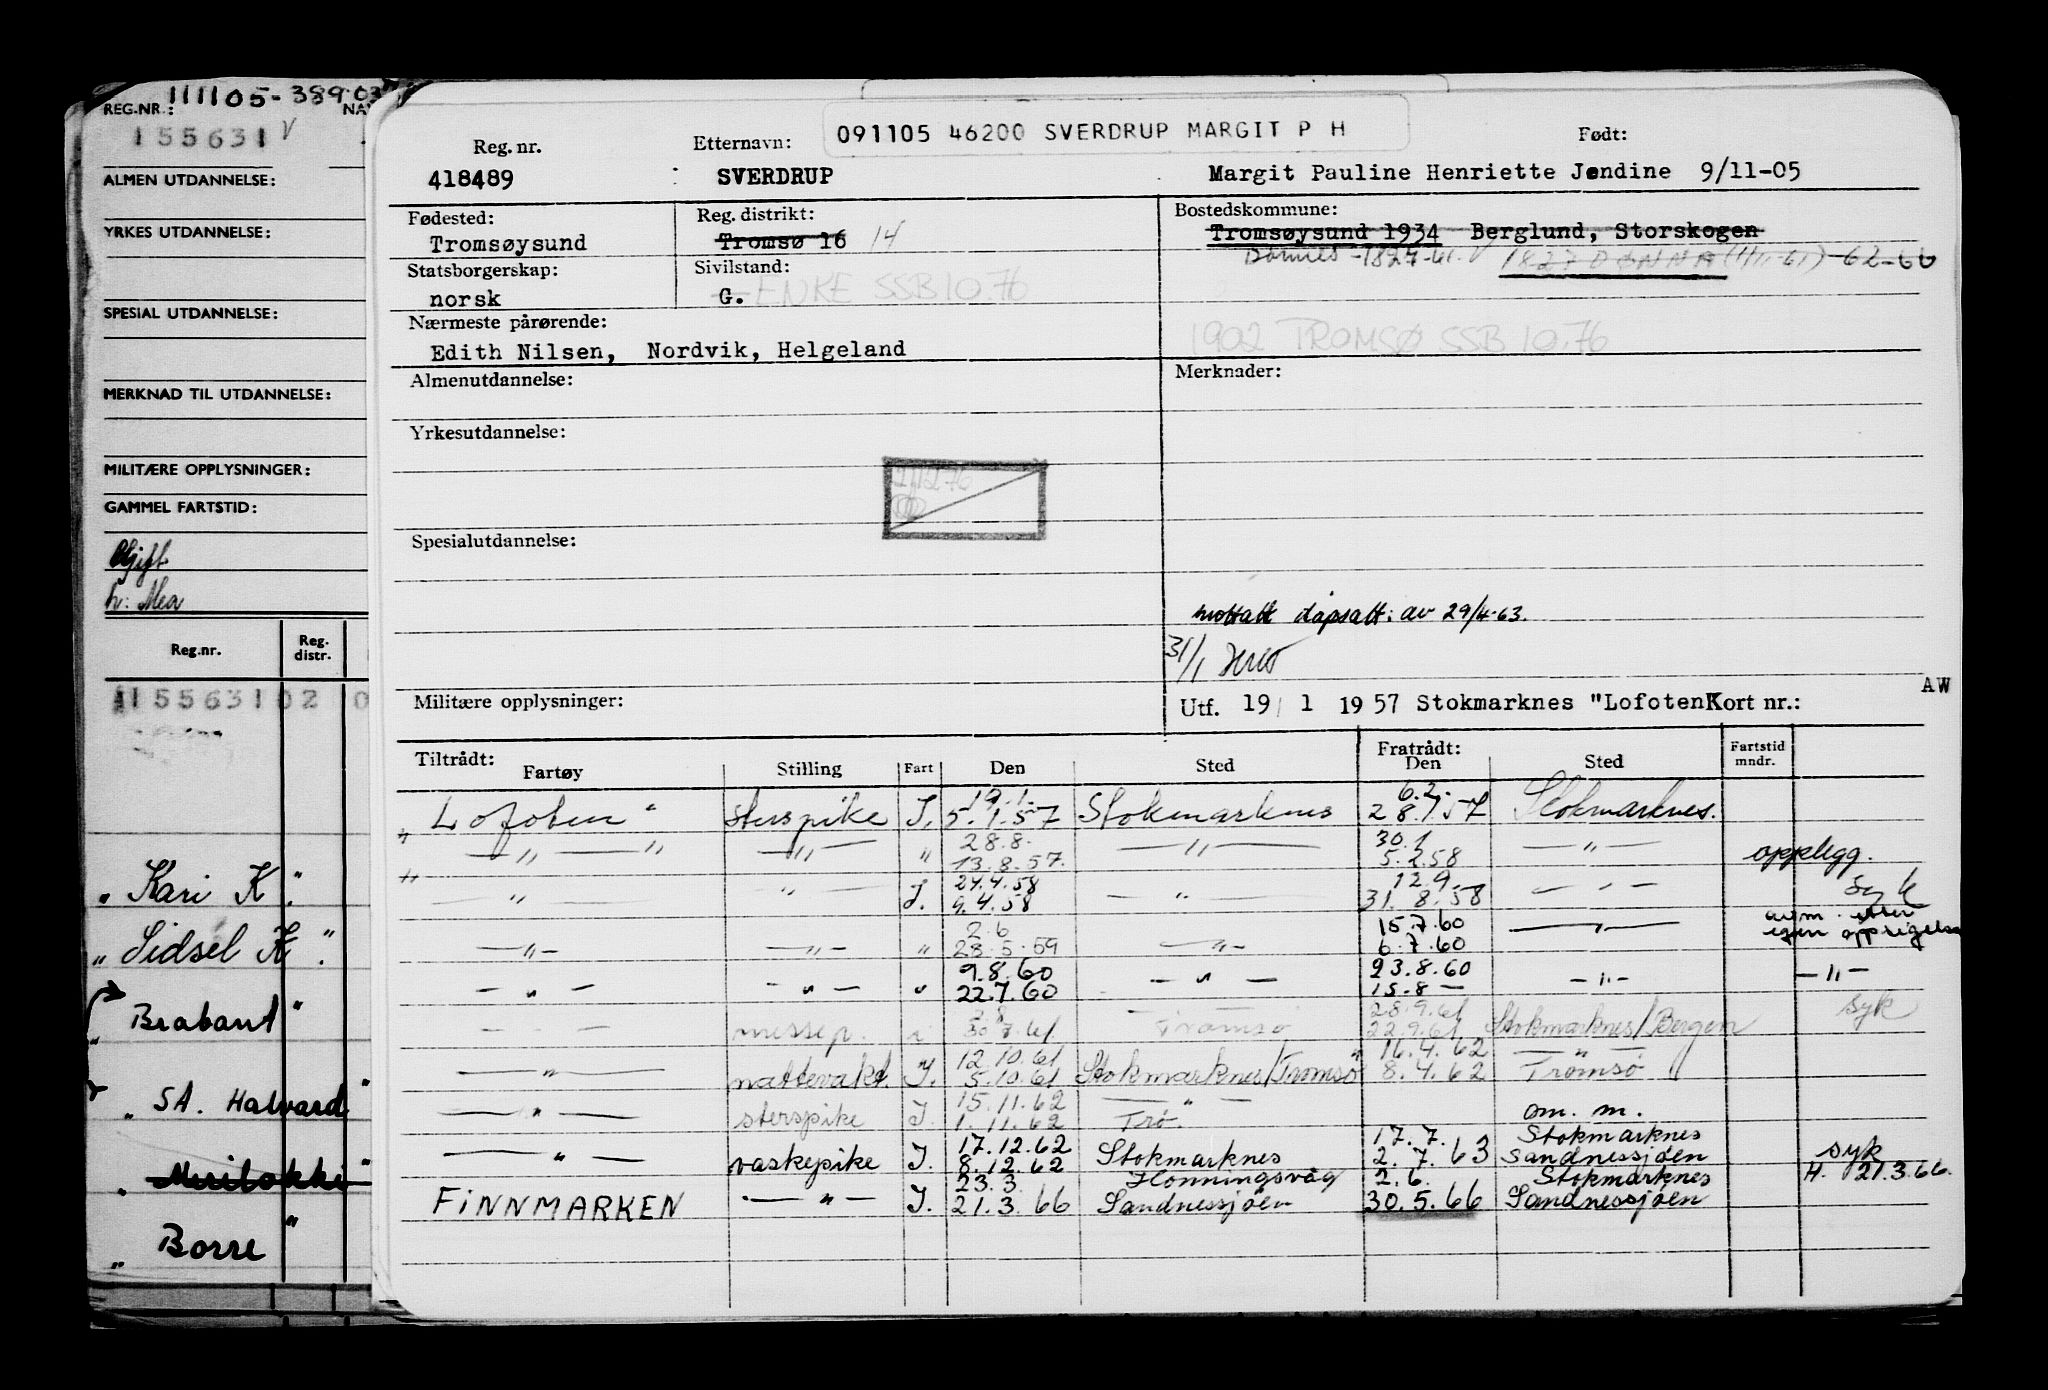 REG.NR.: 111105-389.03 NA
155631 V
ALMEN UTDANNELSE:
YRKES UTDANNELSE:
SPESIAL UTDANNELSE:
MERKNAD TIL UTDANNELSE:
MILITÆRE OPPLYSNINGER:
GAMMEL FARTSTID:
Gift
h: Mea
Reg.nr. Reg. distr.
155631 02 0
" Kari K "
" Sidsel K "
" Brabant "
" SA. Halvard "
" Borre "
091105 46200 SVERDRUP MARGIT P H
Reg. nr. Etternavn: Født:
418489 SVERDRUP Margit Pauline Henriette Jondine 9/11-05
Fødested: Reg. distrikt: Bostedskommune:
Tromsøysund Tromsø 16 14 Tromsøysund 1934 Berglund, Storskogen
1827 DØNNA (1/1-61) -62-66
Statsborgerskap: Sivilstand:
norsk G. ENKE SSB 10.76
Nærmeste pårørende:
Edith Nilsen, Nordvik, Helgeland 1902 TROMSØ SSB 10.76
Almenutdannelse: Merknader:
Yrkesutdannelse:
Spesialutdannelse:
mottatt dåpsatt: av 29/4-63.
31/1
Militære opplysninger: Utf. 19 / 1 1957 Stokmarknes "Lofoten Kort nr.: AW
Tiltrådt: Fratrådt: Fartstid
Fartøy Stilling Fart Den Sted Den Sted mndr.
19.1. 6.2.
" Lofoten " sterspike I. 5.1.57 Stokmarknes 28.1.57 Stokmarknes.
28.8. 30.1
— " — " — " — " 13.8.57. — " — 5.2.58 — " — opplegg.
24.4.58 12.9.
" — " — " I. 9.4.58 — " — 31.8.58 — " — syk
2.6 15.7.60 avm. etter
— " — — " — " 28.5.59 — " — 6.7.60 — " — egen oppsigelse
9.8.60 23.8.60
— " — — " — " 22.7.60 — " — 15.8 — — " — — " —
28.9.61
messep. 30.7.61 Tromsø 22.9.61 Stokmarknes/Bergen syk
12.10.61 16.4.62 — " —
— " — nattevakt. I. 5.10.61 Stokmarknes/Tromsø 8.4.62 Tromsø
15.11.62 — " — om. m.
— " — sterspike I. 1.11.62 Trø.
17.12.62 17.7. Stokmarknes
— " — vaskepike I. 8.12.62 Stokmarknes 2.7.63 Sandnessjøen syk
23.3 Honningsvåg 2.6. Stokmarknes H. 21.3.66.
FINNMARKEN — " — I. 21.3.66 Sandnessjøen 30.5.66 Sandnessjøen